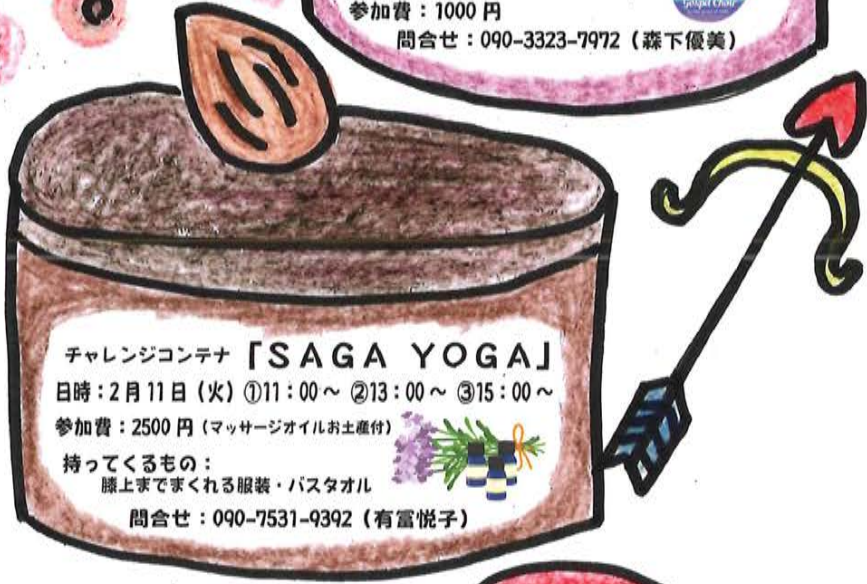 参加費：1000円
Gospel Choir
問合せ：090-3323-7972（森下優美）
チャレンジコンテナ「SAGA YOGA」
日時：2月11日（火）①11：00～ ②13：00～ ③15：00～
参加費：2500円（マッサージオイルお土産付）
持ってくるもの：
膝上までまくれる服装・バスタオル
問合せ：090-7531-9392（有富悦子）